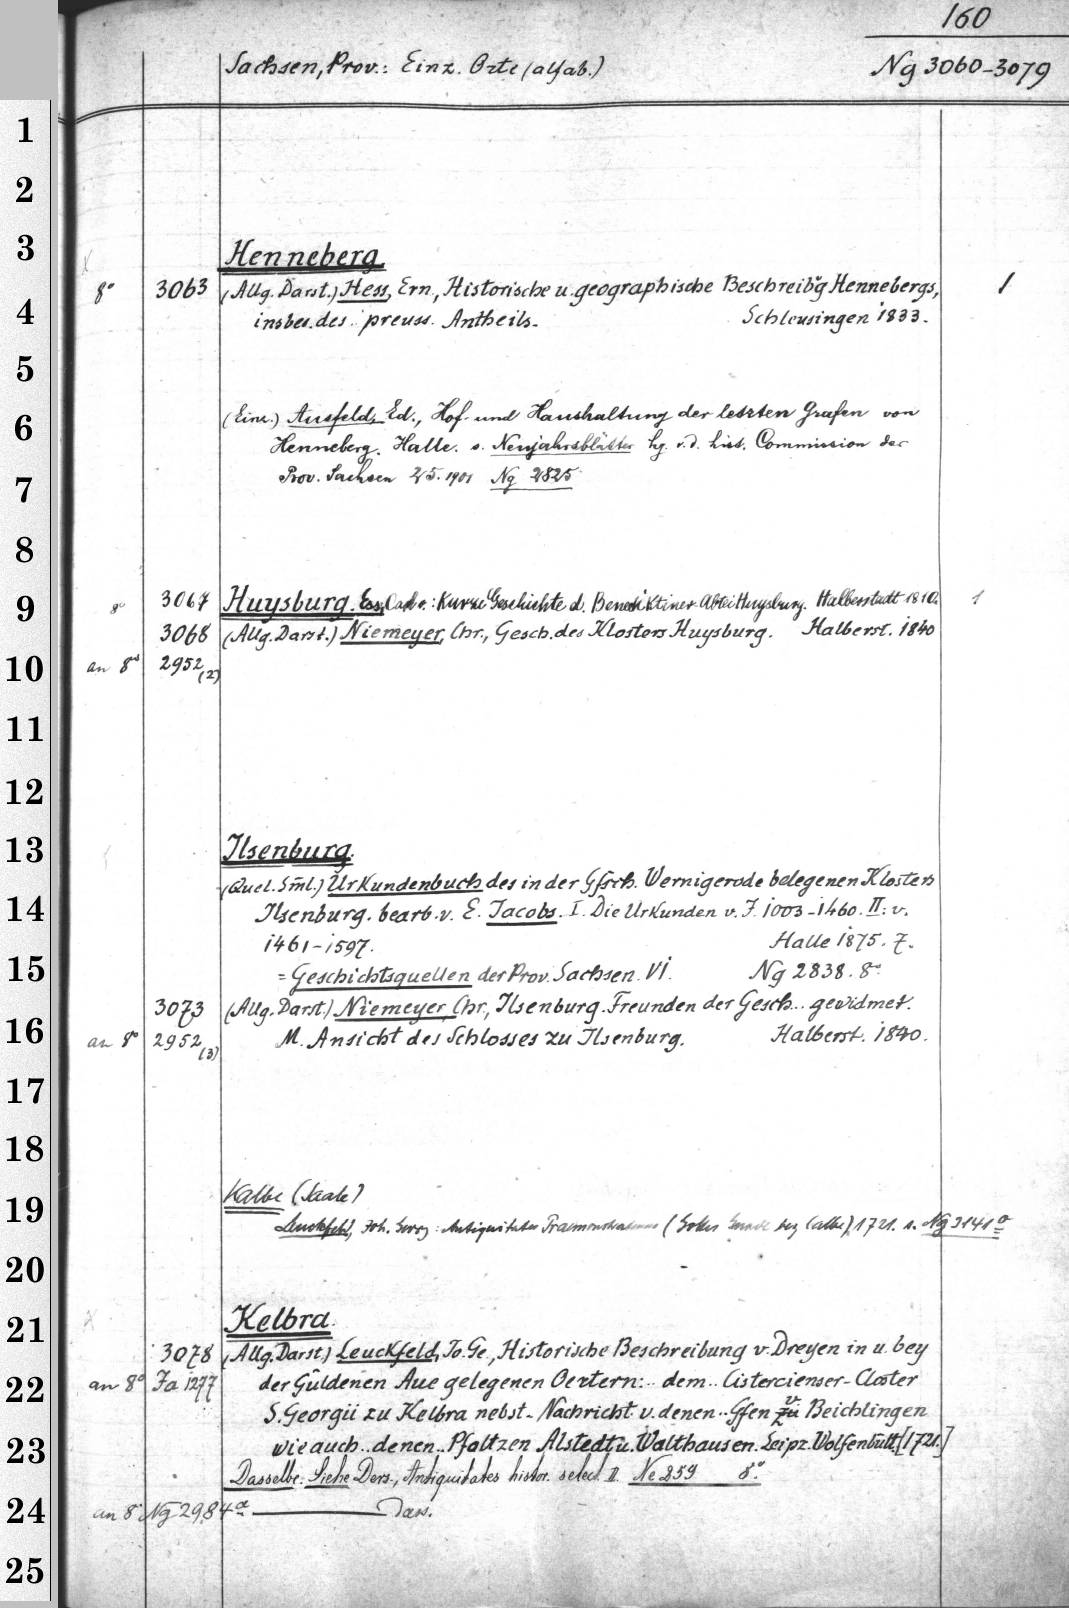 160
Sachsen, Prov.: Einz. Orte (alfab.) Ng 3060-3079
1
2
3 Henneberg
8° 3063 (Allg. Darst.) Hess, Ern., Historische u. geographische Beschreibg Hennebergs, 1
4 insbes. des preuss. Antheils. Schleusingen 1833.
5
6 (Einz.) Ausfeld, Ed., Hof- und Haushaltung der letzten Grafen von
Henneberg. Halle. s. Neujahrsblätter hg. v. d. hist. Commission der
7 Prov. Sachsen 25. 1901 Ng 2825
8
9 8° 3067 Huysburg. Kurze Geschichte d. Benediktiner Abtei Huysburg. Halberstadt 1810. 1
3068 (Allg. Darst.) Niemeyer, Chr., Gesch. des Klosters Huysburg. Halberst. 1840
10 an 8° 2952 (2)
11
12
13 Ilsenburg.
(Quel. Sml.) Urkundenbuch des in der Gfsch. Wernigerode belegenen Klosters
14 Ilsenburg. bearb. v. E. Jacobs. I. Die Urkunden v. J. 1003-1460. II: v.
1461-1597. Halle 1875. 7.
15 = Geschichtsquellen der Prov. Sachsen. VI. Ng 2838. 8°
3073 (Allg. Darst) Niemeyer, Chr., Ilsenburg. Freunden der Gesch. gewidmet.
16 an 8° 2952 (3) M. Ansicht des Schlosses zu Ilsenburg. Halberst. 1840.
17
18
19 Kalbe (Saale)
Leuckfeld, Joh. Georg: Antiquitates Praemonstratenses (Gottes Gnade bey Calbe) 1721. s. Ng 3141 a
20
21 Kelbra.
3078 (Allg. Darst) Leuckfeld, Jo. Ge., Historische Beschreibung v. Dreyen in u. bey
22 an 8° Fa 1277 der Güldenen Aue gelegenen Oertern: dem Cistercienser-Closter
S. Georgii zu Kelbra nebst Nachricht v. denen Gfen v Beichlingen
23 wie auch denen Pfaltzen Alstedt u. Walthausen. Leipz. Wolfenbütt. [1721.]
Dasselbe. Siehe Ders., Antiquitates histor. select. II Ne 259 8°
24 an 8° Ng 2984 a Dass.
25